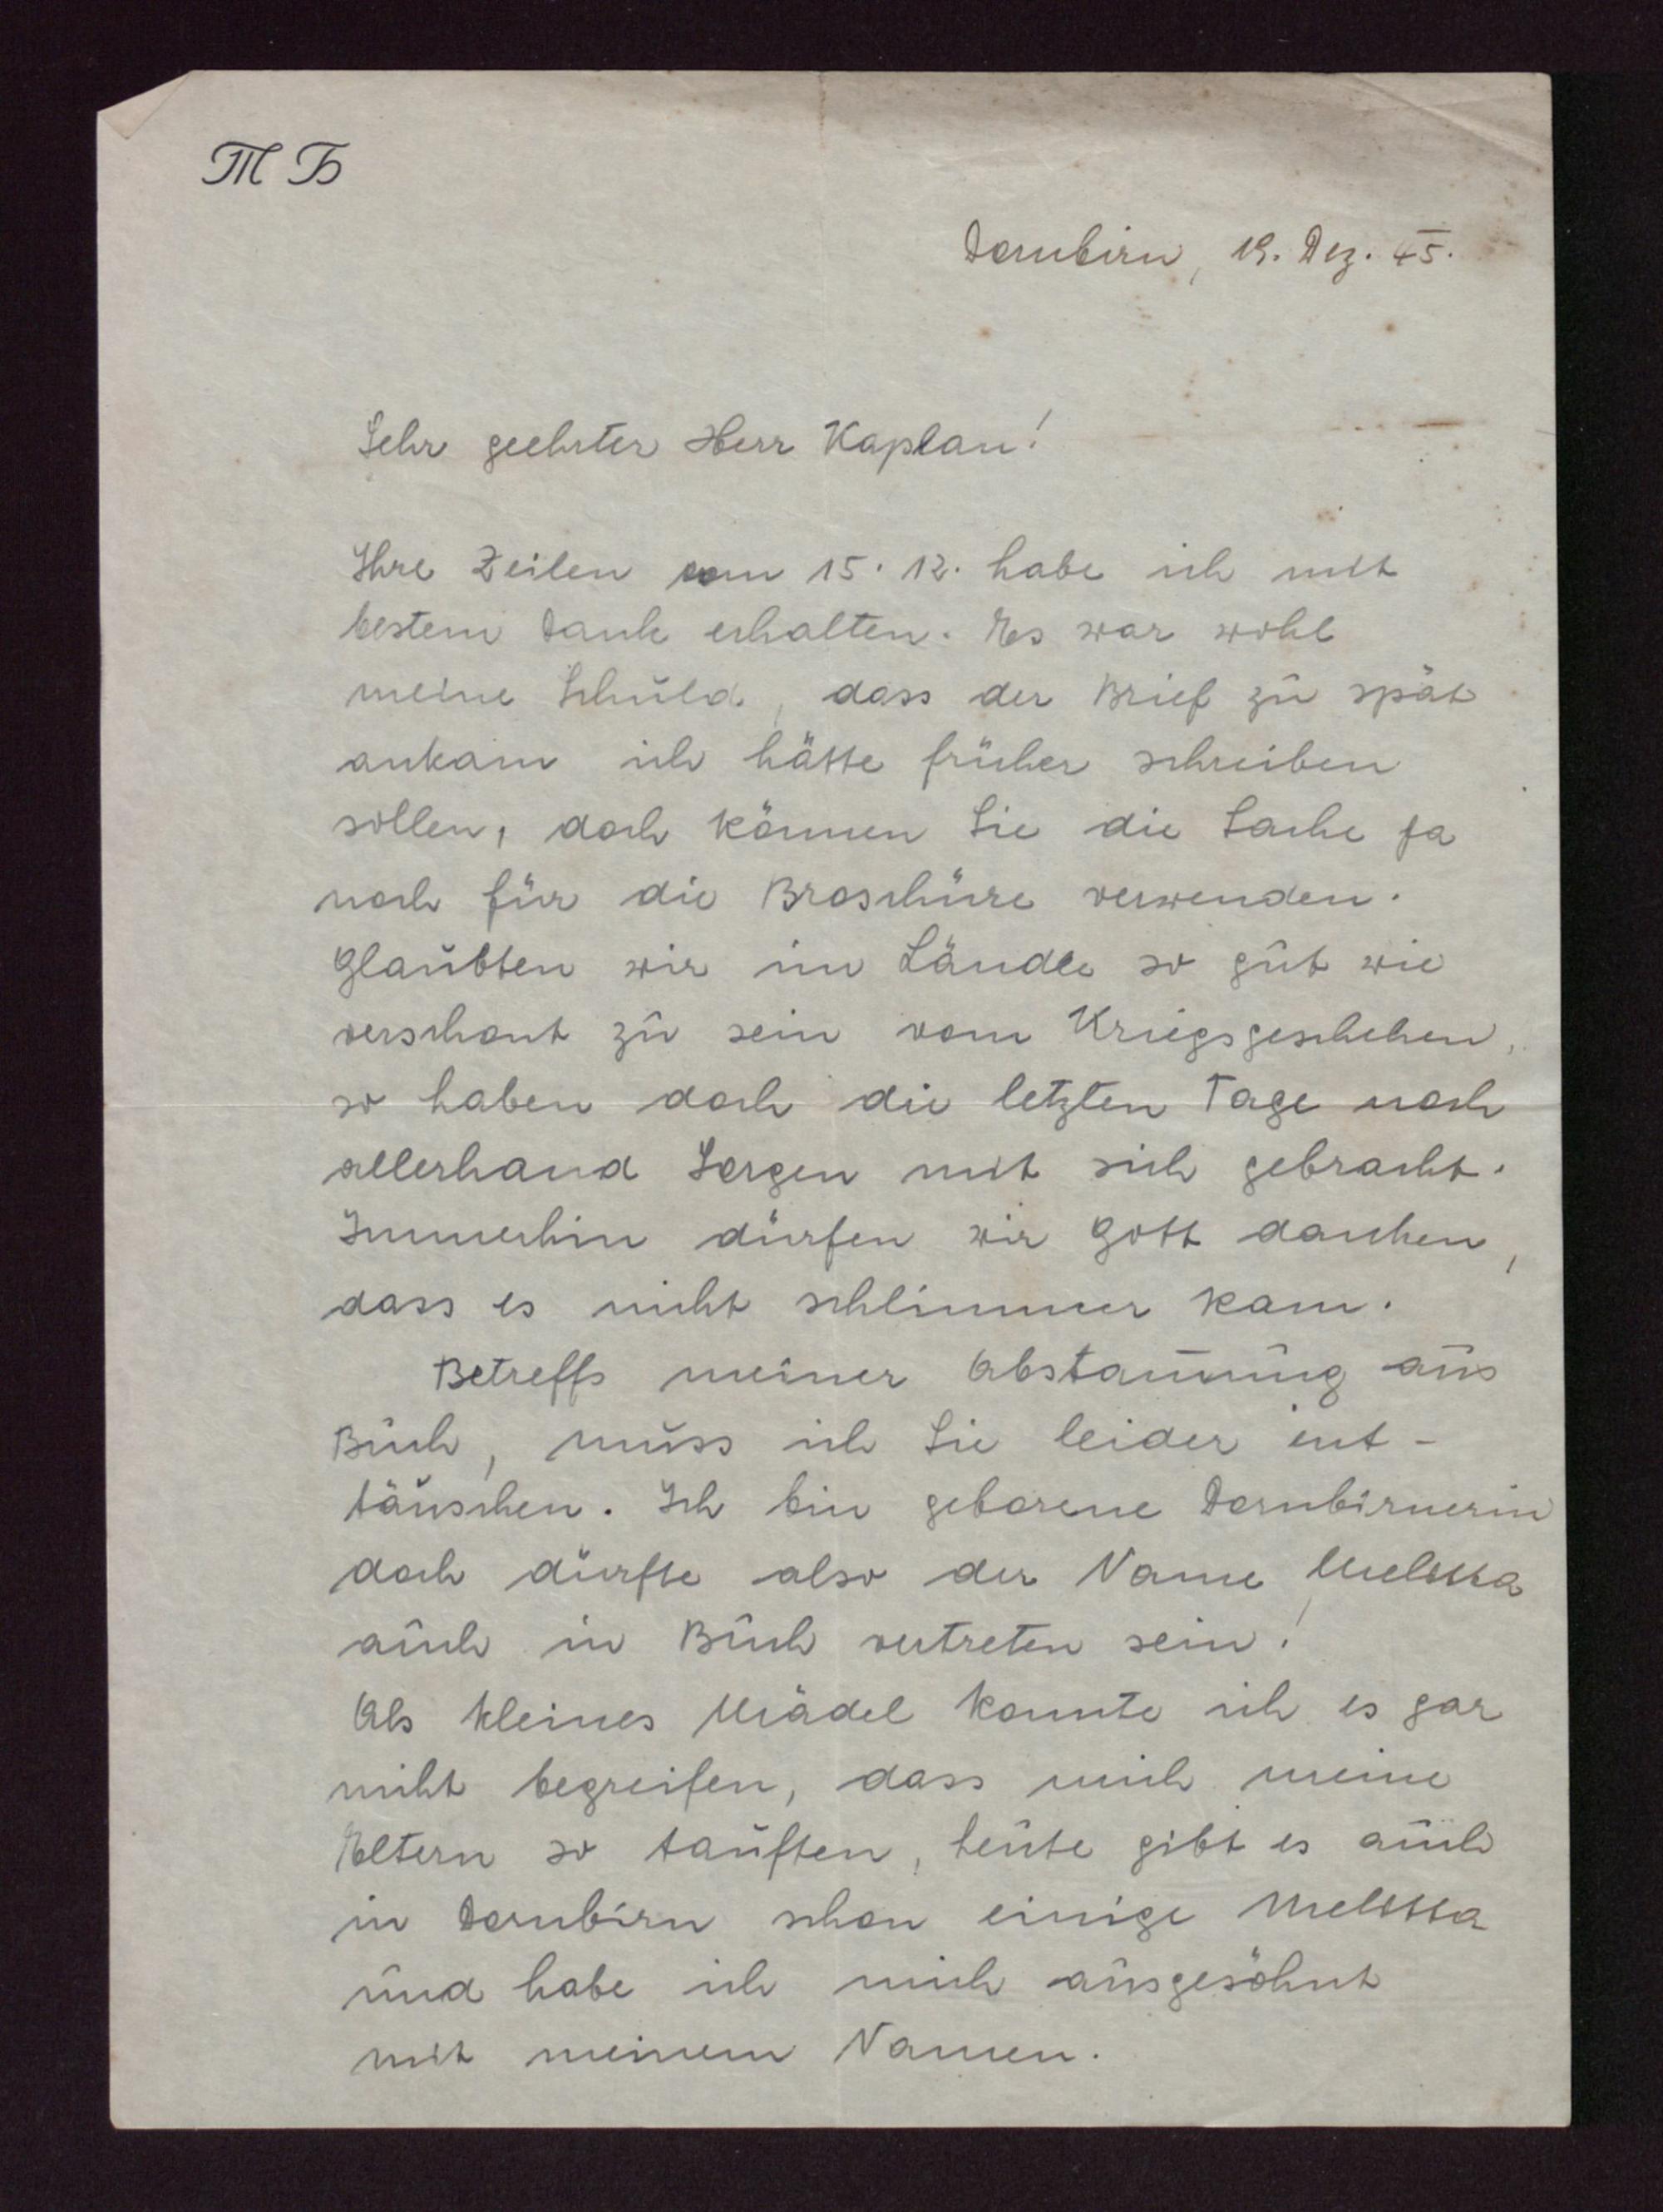 TB
Dornbirn, 19. Dez. 45.
Sehr geehrter Herr Kaplan!
Ihre Zeilen vom 15. 12. habe ich mit
bestem Dank erhalten. Es war wohl
meine Schuld, dass der Brief zu spät
ankam ich hätte früher schreiben
sollen, doch können Sie die Sache ja
noch für die Broschüre verwenden.
Glaubten wir im Ländle so gut wie
verschont zu sein vom Kriegsgeschehen,
so haben doch die letzten Tage noch
allerhand Sorgen mit sich gebracht.
Immerhin dürfen wir Gott danken,
dass es nicht schlimmer kam.
Betreffs meiner Abstammung aus
Buch, muss ich Sie leider ent-
täuschen. Ich bin geborene Dornbirnerin
doch dürfte also der Name Melitta
auch in Buch vertreten sein!
Als kleines Mädel konnte ich es gar
nicht begreifen, dass mich meine
Eltern so tauften, heute gibt es auch
in Dornbirn schon einige Melitta
und habe ich mich ausgesöhnt
mit meinem Namen.